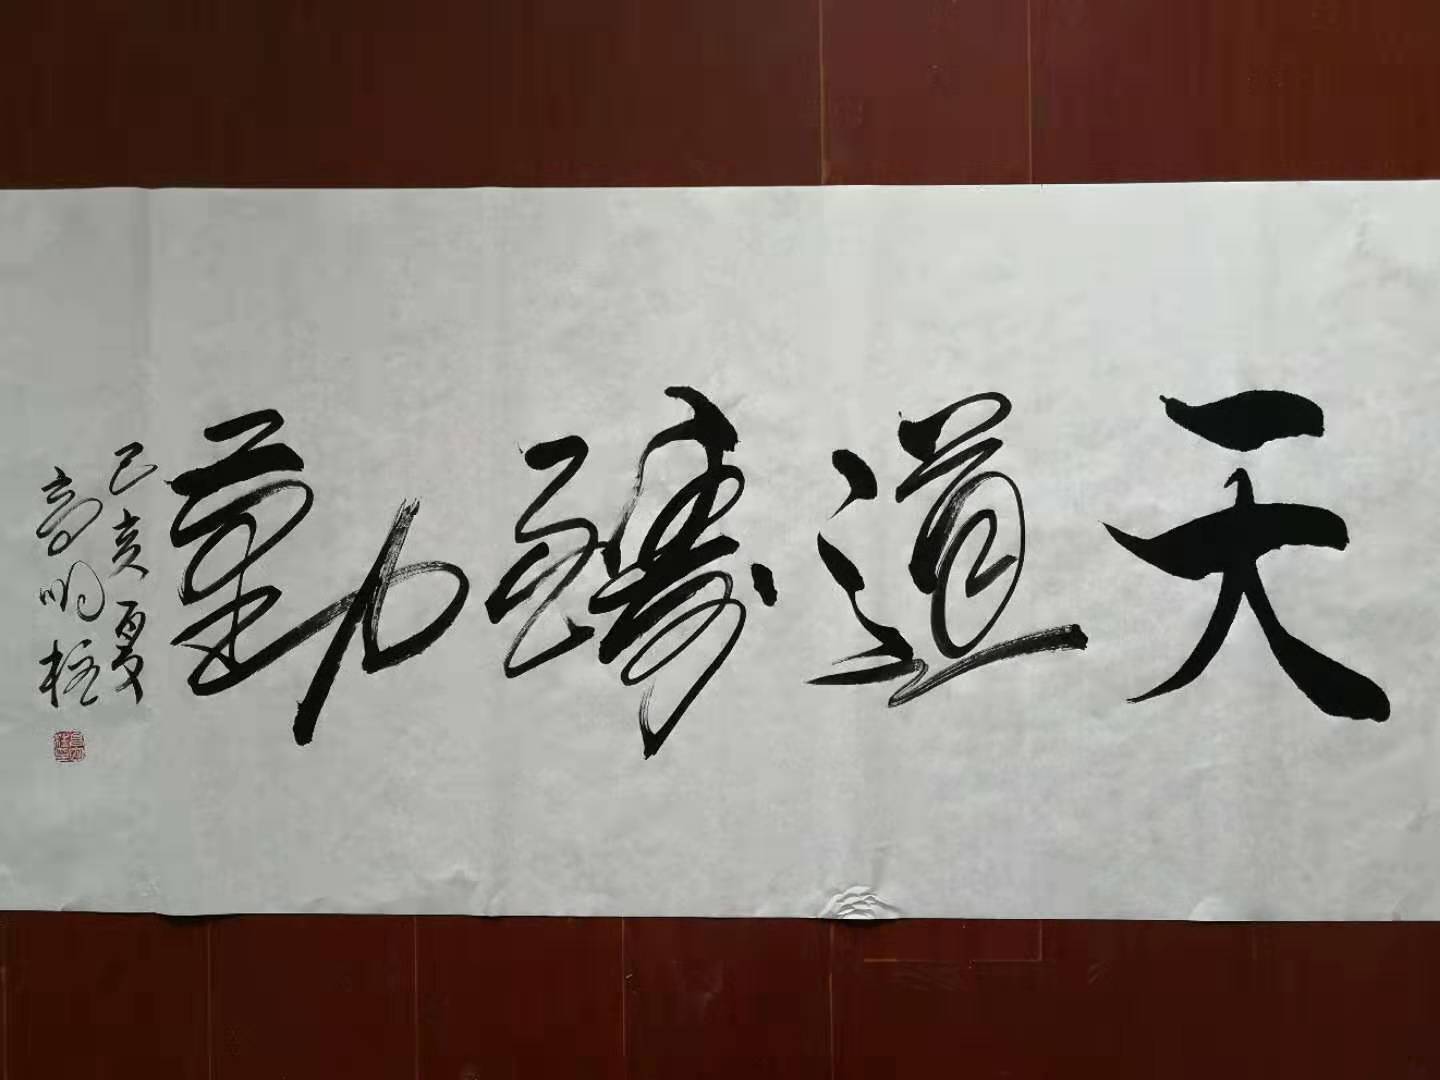 天道酬勤
己亥夏
高明柱